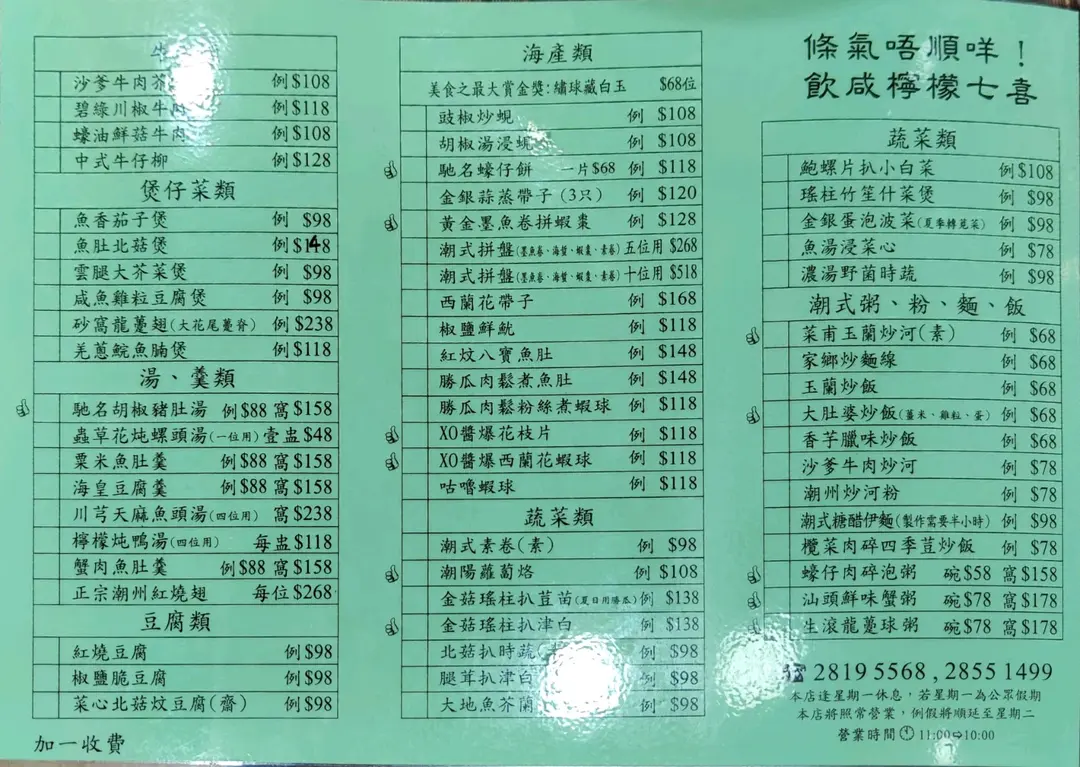 牛
沙爹牛肉芥 例 $108
碧綠川椒牛肉 例 $118
蠔油鮮菇牛肉 例 $108
中式牛仔柳 例 $128
煲仔菜類
魚香茄子煲 例 $98
魚肚北菇煲 例 $148
雲腿大芥菜煲 例 $98
咸魚雞粒豆腐煲 例 $98
砂窩龍躉翅(大花尾躉脊) 例 $238
羌蔥鯇魚腩煲 例 $118
湯、羹類
馳名胡椒豬肚湯 例$88 窩$158
蟲草花炖螺頭湯(一位用) 壹盅$48
粟米魚肚羹 例$88 窩$158
海皇豆腐羹 例$88 窩$158
川芎天麻魚頭湯(四位用) 窩$238
檸檬炖鴨湯(四位用) 每盅$118
蟹肉魚肚羹 例$88 窩$158
正宗潮州紅燒翅 每位$268
豆腐類
紅燒豆腐 例 $98
椒鹽脆豆腐 例 $98
菜心北菇炆豆腐(齋) 例 $98
加一收費
海產類
美食之最大賞金獎:繡球藏白玉 $68位
豉椒炒蜆 例 $108
胡椒湯浸蜆 例 $108
馳名蠔仔餅 一片$68 例 $118
金銀蒜蒸帶子(3只) 例 $120
黃金墨魚卷拼蝦棗 例 $128
潮式拼盤(墨魚卷、海蜇、蝦棗、素卷) 五位用 $268
潮式拼盤(墨魚卷、海蜇、蝦棗、素卷) 十位用 $518
西蘭花帶子 例 $168
椒鹽鮮魷 例 $118
紅炆八寶魚肚 例 $148
勝瓜肉鬆煮魚肚 例 $148
勝瓜肉鬆粉絲煮蝦球 例 $118
XO醬爆花枝片 例 $118
XO醬爆西蘭花蝦球 例 $118
咕嚕蝦球 例 $118
蔬菜類
潮式素卷(素) 例 $98
潮陽蘿蔔烙 例 $108
金菇瑤柱扒莧苗(夏日用勝瓜) 例 $138
金菇瑤柱扒津白 例 $138
北菇扒時蔬 例 $98
腿茸扒津白 例 $98
大地魚芥蘭 例 $98
條氣唔順咩!
飲咸檸檬七喜
蔬菜類
鮑螺片扒小白菜 例 $108
瑤柱竹笙什菜煲 例 $98
金銀蛋泡波菜(夏季轉莧菜) 例 $98
魚湯浸菜心 例 $78
濃湯野菌時蔬 例 $98
潮式粥、粉、麵、飯
菜甫玉蘭炒河(素) 例 $68
家鄉炒麵線 例 $68
玉蘭炒飯 例 $68
大肚婆炒飯(薑米、雞粒、蛋) 例 $68
香芋臘味炒飯 例 $68
沙爹牛肉炒河 例 $78
潮州炒河粉 例 $78
潮式糖醋伊麵(製作需要半小時) 例 $98
欖菜肉碎四季荳炒飯 例 $78
蠔仔肉碎泡粥 碗$58 窩$158
汕頭鮮味蟹粥 碗$78 窩$178
生滾龍躉球粥 碗$78 窩$178
2819 5568 , 2855 1499
本店逢星期一休息,若星期一為公眾假期
本店將照常營業,例假將順延至星期二
營業時間 11:00⇨10:00